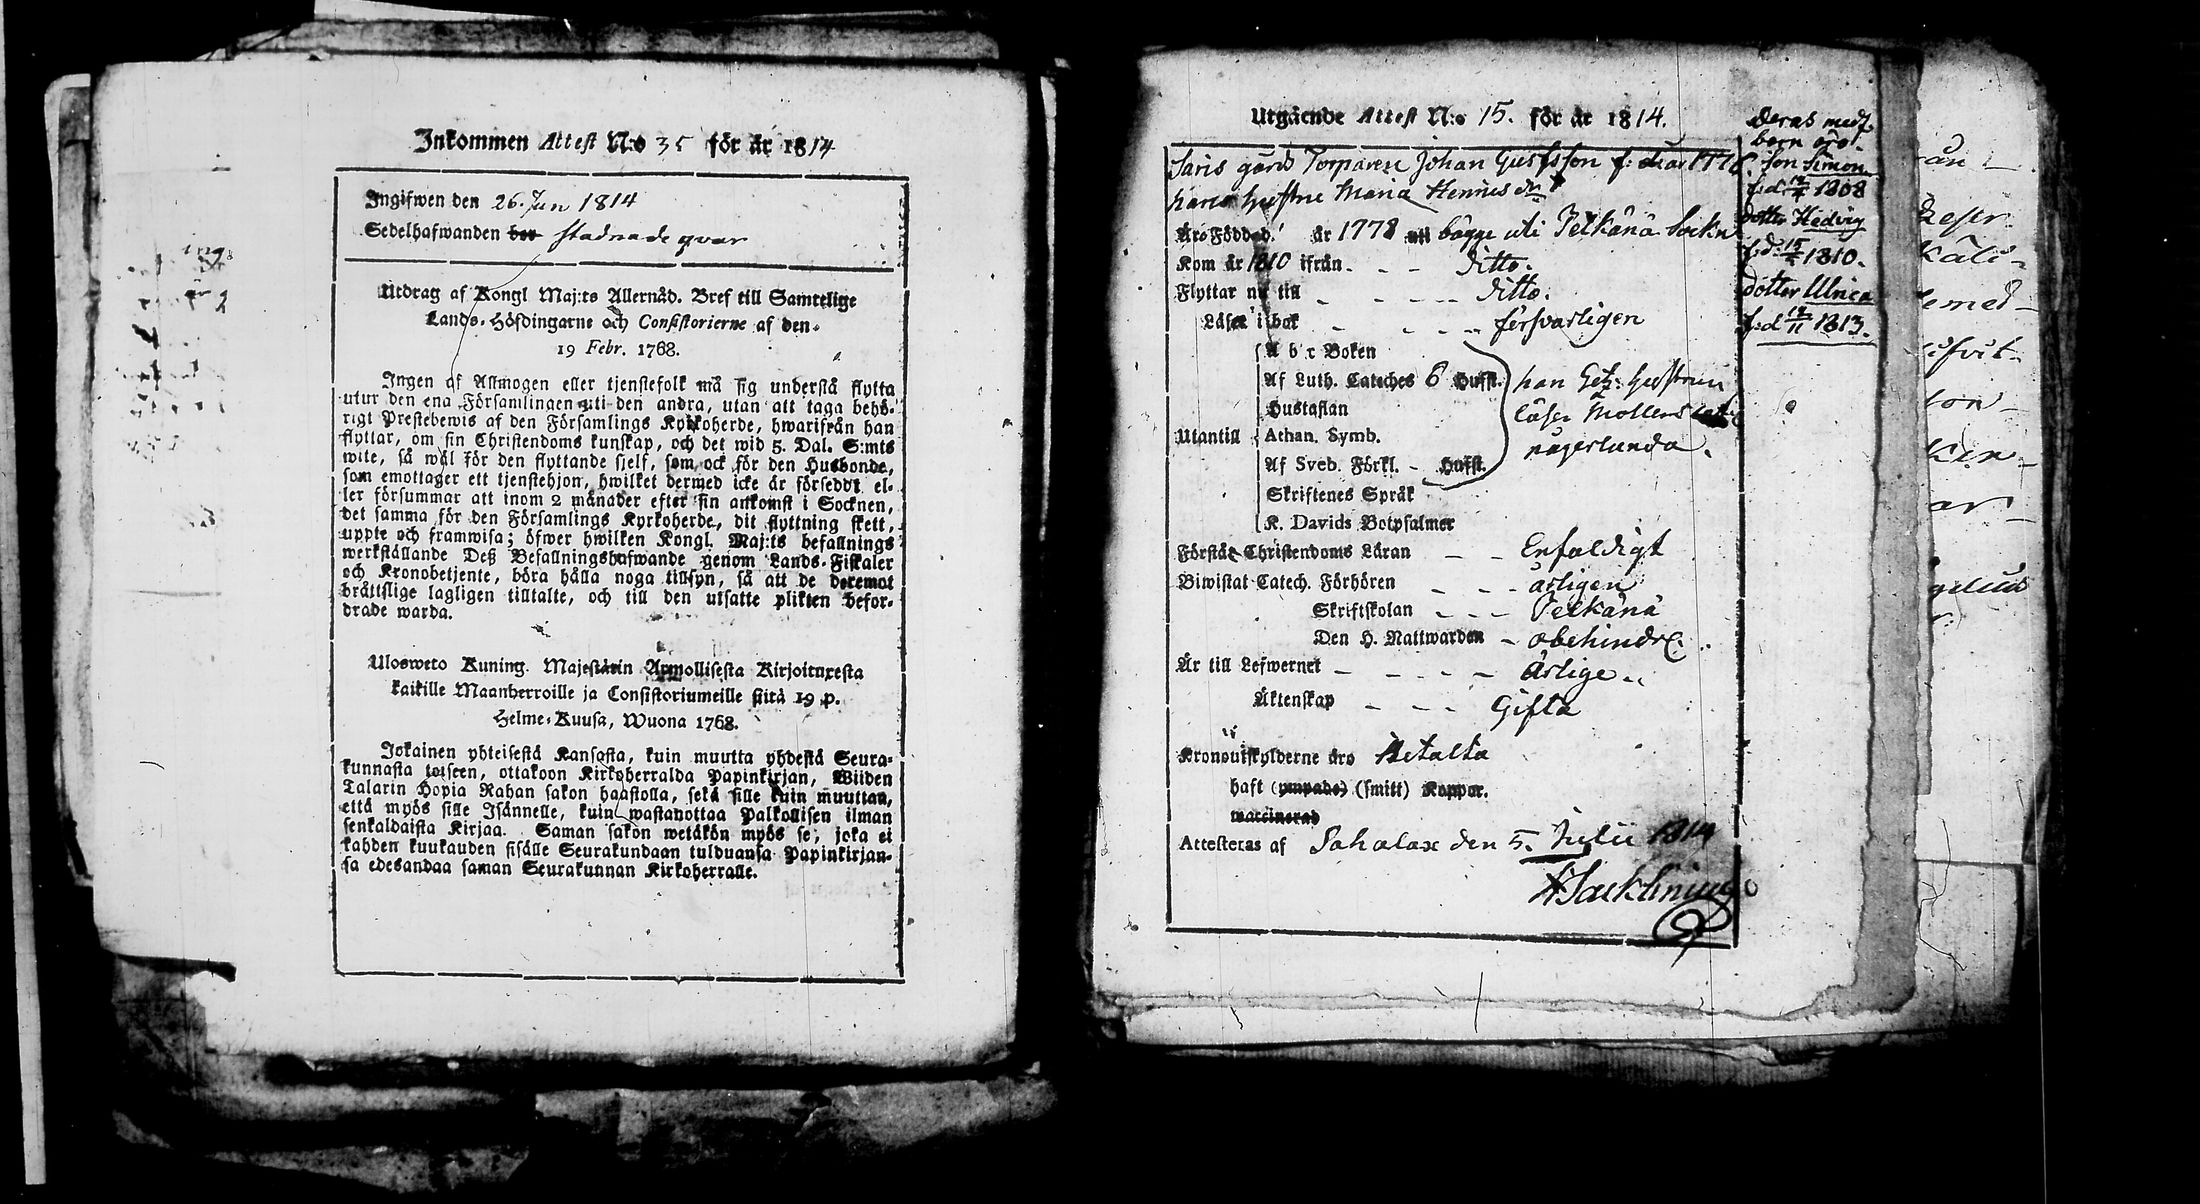 Inkommen Attest N:o 35 för år 1814
Ingifwen den 26. Jun 1814
Sedelhafwanden bor stadnade qvar
Utdrag af Kongl Maj:ts Allernåd. Bref till Samtelige
Lands-Höfdingarne och Consistorierne af den
19 Febr. 1768.
Ingen af Allmogen eller tjenstefolk må sig understå flytta
utur den ena Församlingen uti den andra, utan att taga behö-
rigt Prestebewis af den Församlings Kyrkoherde, hwarifrån han
flyttar, om sin Christendoms kunskap, och det wid 5. Dal. S:mts
wite, så wäl för den flyttande sjelf, som ock för den Husbonde,
som emottager ett tjenstehjon, hwilket dermed icke är försedt el-
ler försummar att inom 2 månader efter sin ankomst i Socknen,
det samma för den Församlings Kyrkoherde, dit flyttning skett,
uppte och framwisa; öfwer hwilken Kongl. Maj:ts befallnings
werkställande Deß Befallningshafwande genom Lands-Fiskaler
och Kronobetjente, böra hålla noga tillsyn, så att de deremot
bråttslige lagligen tilltalte, och till den utsatte plikten befor-
drade warda.
Ulosweto Kuning. Majestätin Armollisesta Kirjoituxesta
kaikille Maanherroille ja Consistoriumeille siitä 19 p.
Helme-Kuusa, Wuona 1768.
Jokainen yhteisestä Kansasta, kuin muutta yhdestä Seura-
kunnasta toiseen, ottakoon Kirkoherralda Papinkirjan, Wiiden
Talarin Hopia Rahan sakon haastolla, sekä sille kuin muuttaa,
että myös sille Isännelle, kuin wastanottaa Palkollisen ilman
senkaldaista Kirjaa. Saman sakon wetäkön myös se, joka ei
kahden kuukauden sisälle Seurakundaan tulduansa Papinkirjan-
sa edesandaa saman Seurakunnan Kirkoherralle.
Utgående Attest N:o 15. för år 1814.
Saris gårds Torparen Johan Gustfson f: d: år 1776
hans hustru Maria Hennes d:r
Äro Födde d. år 1778 uti bägge uti Pelkäna Sockn
Kom år 1810 ifrån - - - ditto.
Flyttar nu till - - - - ditto.
Läser i bok - - - - försvarligen
Utantill
A b c Boken
Af Luth. Cateches 6 Hufst.
Hustaflan
Athan. Symb.
Af Sveb. Förkl. - Hufst.
Skriftenes Språk
K. Davids Botpsalmer
han Getz: hustrun
läser Mollers
någerlunda.
Förstår Christendoms Läran - - Enfaldigt
Biwistat Catech. Förhören - - - årligen
Skriftskolan - - - Pelkänä
Den H. Nattwarden - obehindr:
Är till Lefwernet - - - - - Ärlige
Äktenskap - - - Gifta
Kronoutskylderne äro Betalta
haft (ympade) (smitt) Koppor.
waccinerad
Attesteras af Sahalax den 5. Julii 1814
Deras med
barn äro:
son Simon
f: d 12/7 1808
dotter Hedvig
f: d. 1810.
dotter Ulrica
f: d 12/11 1813.